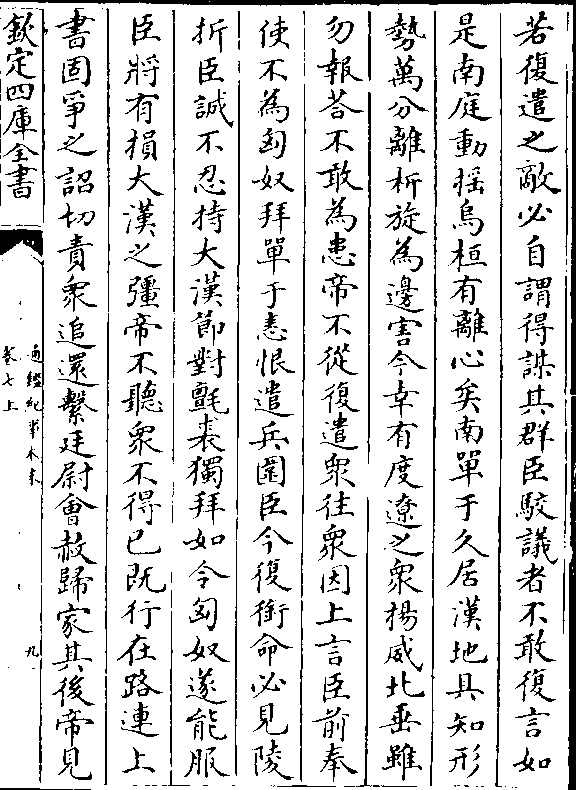 若復遣之敵必自謂得謀其群臣駮議者不敢復言如
是南庭動揺烏桓有離心矣南單于久居漢地具知形
勢萬分離析旋為邊害今幸有度遼之衆楊威北垂雖
勿報荅不敢為患帝不從復遣衆往衆因上言臣前奉
使不為匈奴拜單于恚恨遣兵圍臣今復銜命必見陵
折臣誠不忍持大漢節對氈裘獨拜如令匈奴遂能服
臣將有損大漢之彊帝不聽衆不得已既行在路連上
書固爭之詔切責衆追還繫廷尉會赦歸家其後帝見
欽定四庫全書
通鑑紀事本末
卷七上
九